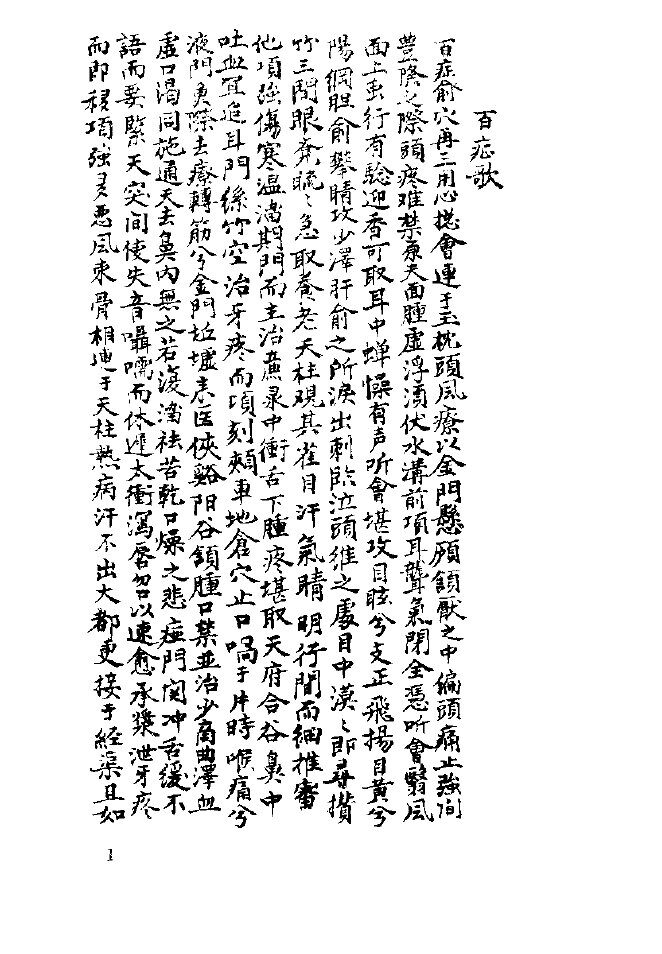 百症歌
百症俞穴再三用心摠會連于玉枕頭風療以金门懸顱頷厭之中偏頭痛止強间
豊隆之際頭疼难禁原夫面腫虛浮須伏水溝前頂耳聾氣閉全憑听會翳风
面上虫行有驗迎香可取耳中蝉懆有声听會堪攻目眩兮支正飛揚目黄兮
陽綱胆俞攀睛攻少澤肝俞之所淚出刺臨泣頭維之處目中漠〻即尋攢
竹三間眼覩䀮〻急取養老天柱观其雀目汗氣睛明行間而細推審
他項強傷寒温溜期門而主治廉泉中衝舌下腫疼堪取天府合谷鼻中
吐血宜追耳门絲竹空治牙疼而項刻頰車地倉穴止口喎于片時喉痛兮
液門魚際去療轉筋兮金門坵墟来医俠谿阳谷頷腫口禁並治少商曲澤血
虛口渴同施通天去鼻内無之苦復溜袪苦乾口燥之悲痖門関冲舌缓不
語而要緊天突间使失音囁嚅而休遲太衝瀉唇喎以速愈承漿泄牙疼
而即移項強多悪风束骨相連于天柱热病汗不出大都更接于経渠且如
1